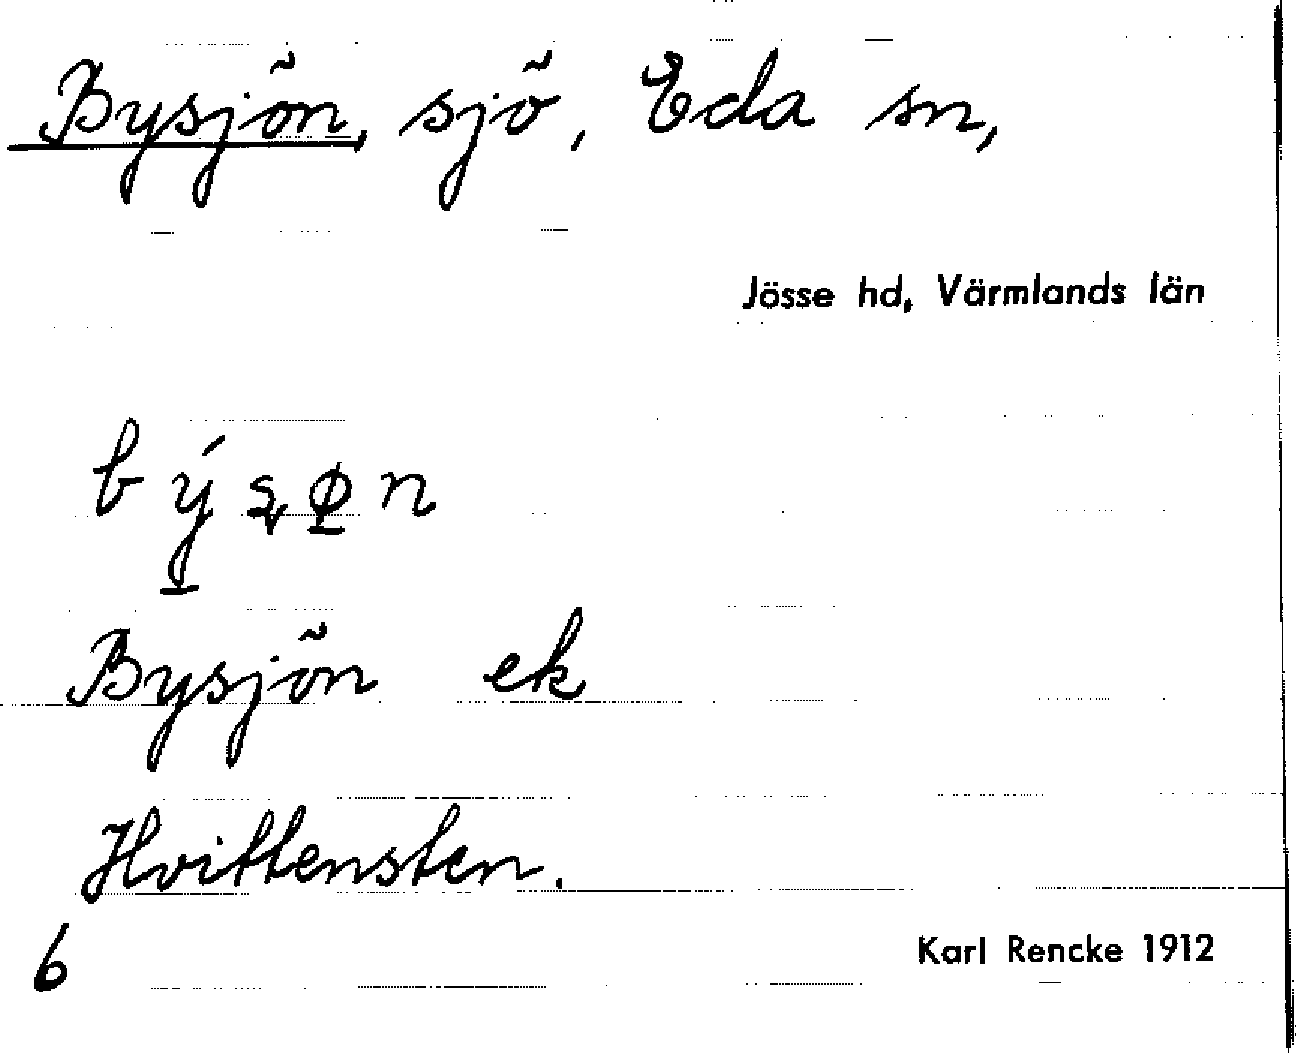 Bysjön, sjö, Eda sn,
Jösse hd, Värmlands län
Bysjön ek
Hvittensten.
6
Karl Rencke 1912